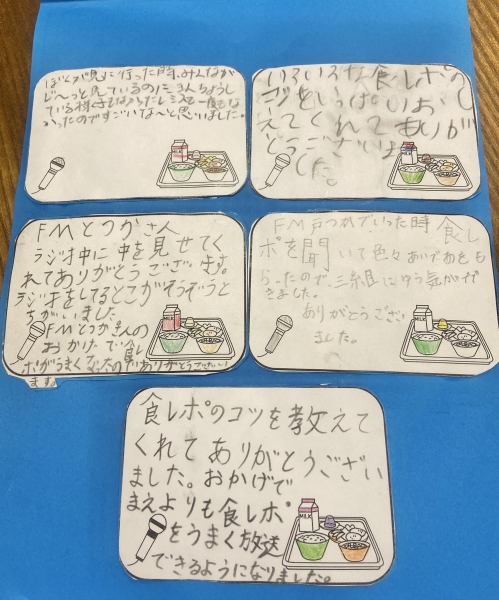 ぼくが見に行った時、みんなが
じ〜っと見ているのに きんちょうし
ている様子もなかったしミスも一度もな
かったのですごいな〜と思いました。
いろいろな食レポの
ことをいっぱいおし
えてくれてありが
とうございま
した。
FMとつかさん
ラジオ中に中を見せてく
れてありがとうございます。
ラジオをしてるとこがそうぞうと
ちがいました
FMとつかさんの
おかげで食レ
ポがうまくなったのでありがとうござい
ます。
FM戸つかでいった時 食レ
ポを聞いて色々あいであをも
らったので、三組にゆう気がで
きました。
ありがとうござい
ました。
食レポのコツを教えて
くれてありがとうござい
ました。おかげで
まえよりも食レポ
をうまく放送
できるようになりました。
MILK